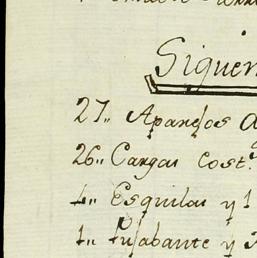 Siguen
27,, Aparejos
26,, Cargas Cost.
4,, Esquilas y 1
1,, Pujabante y